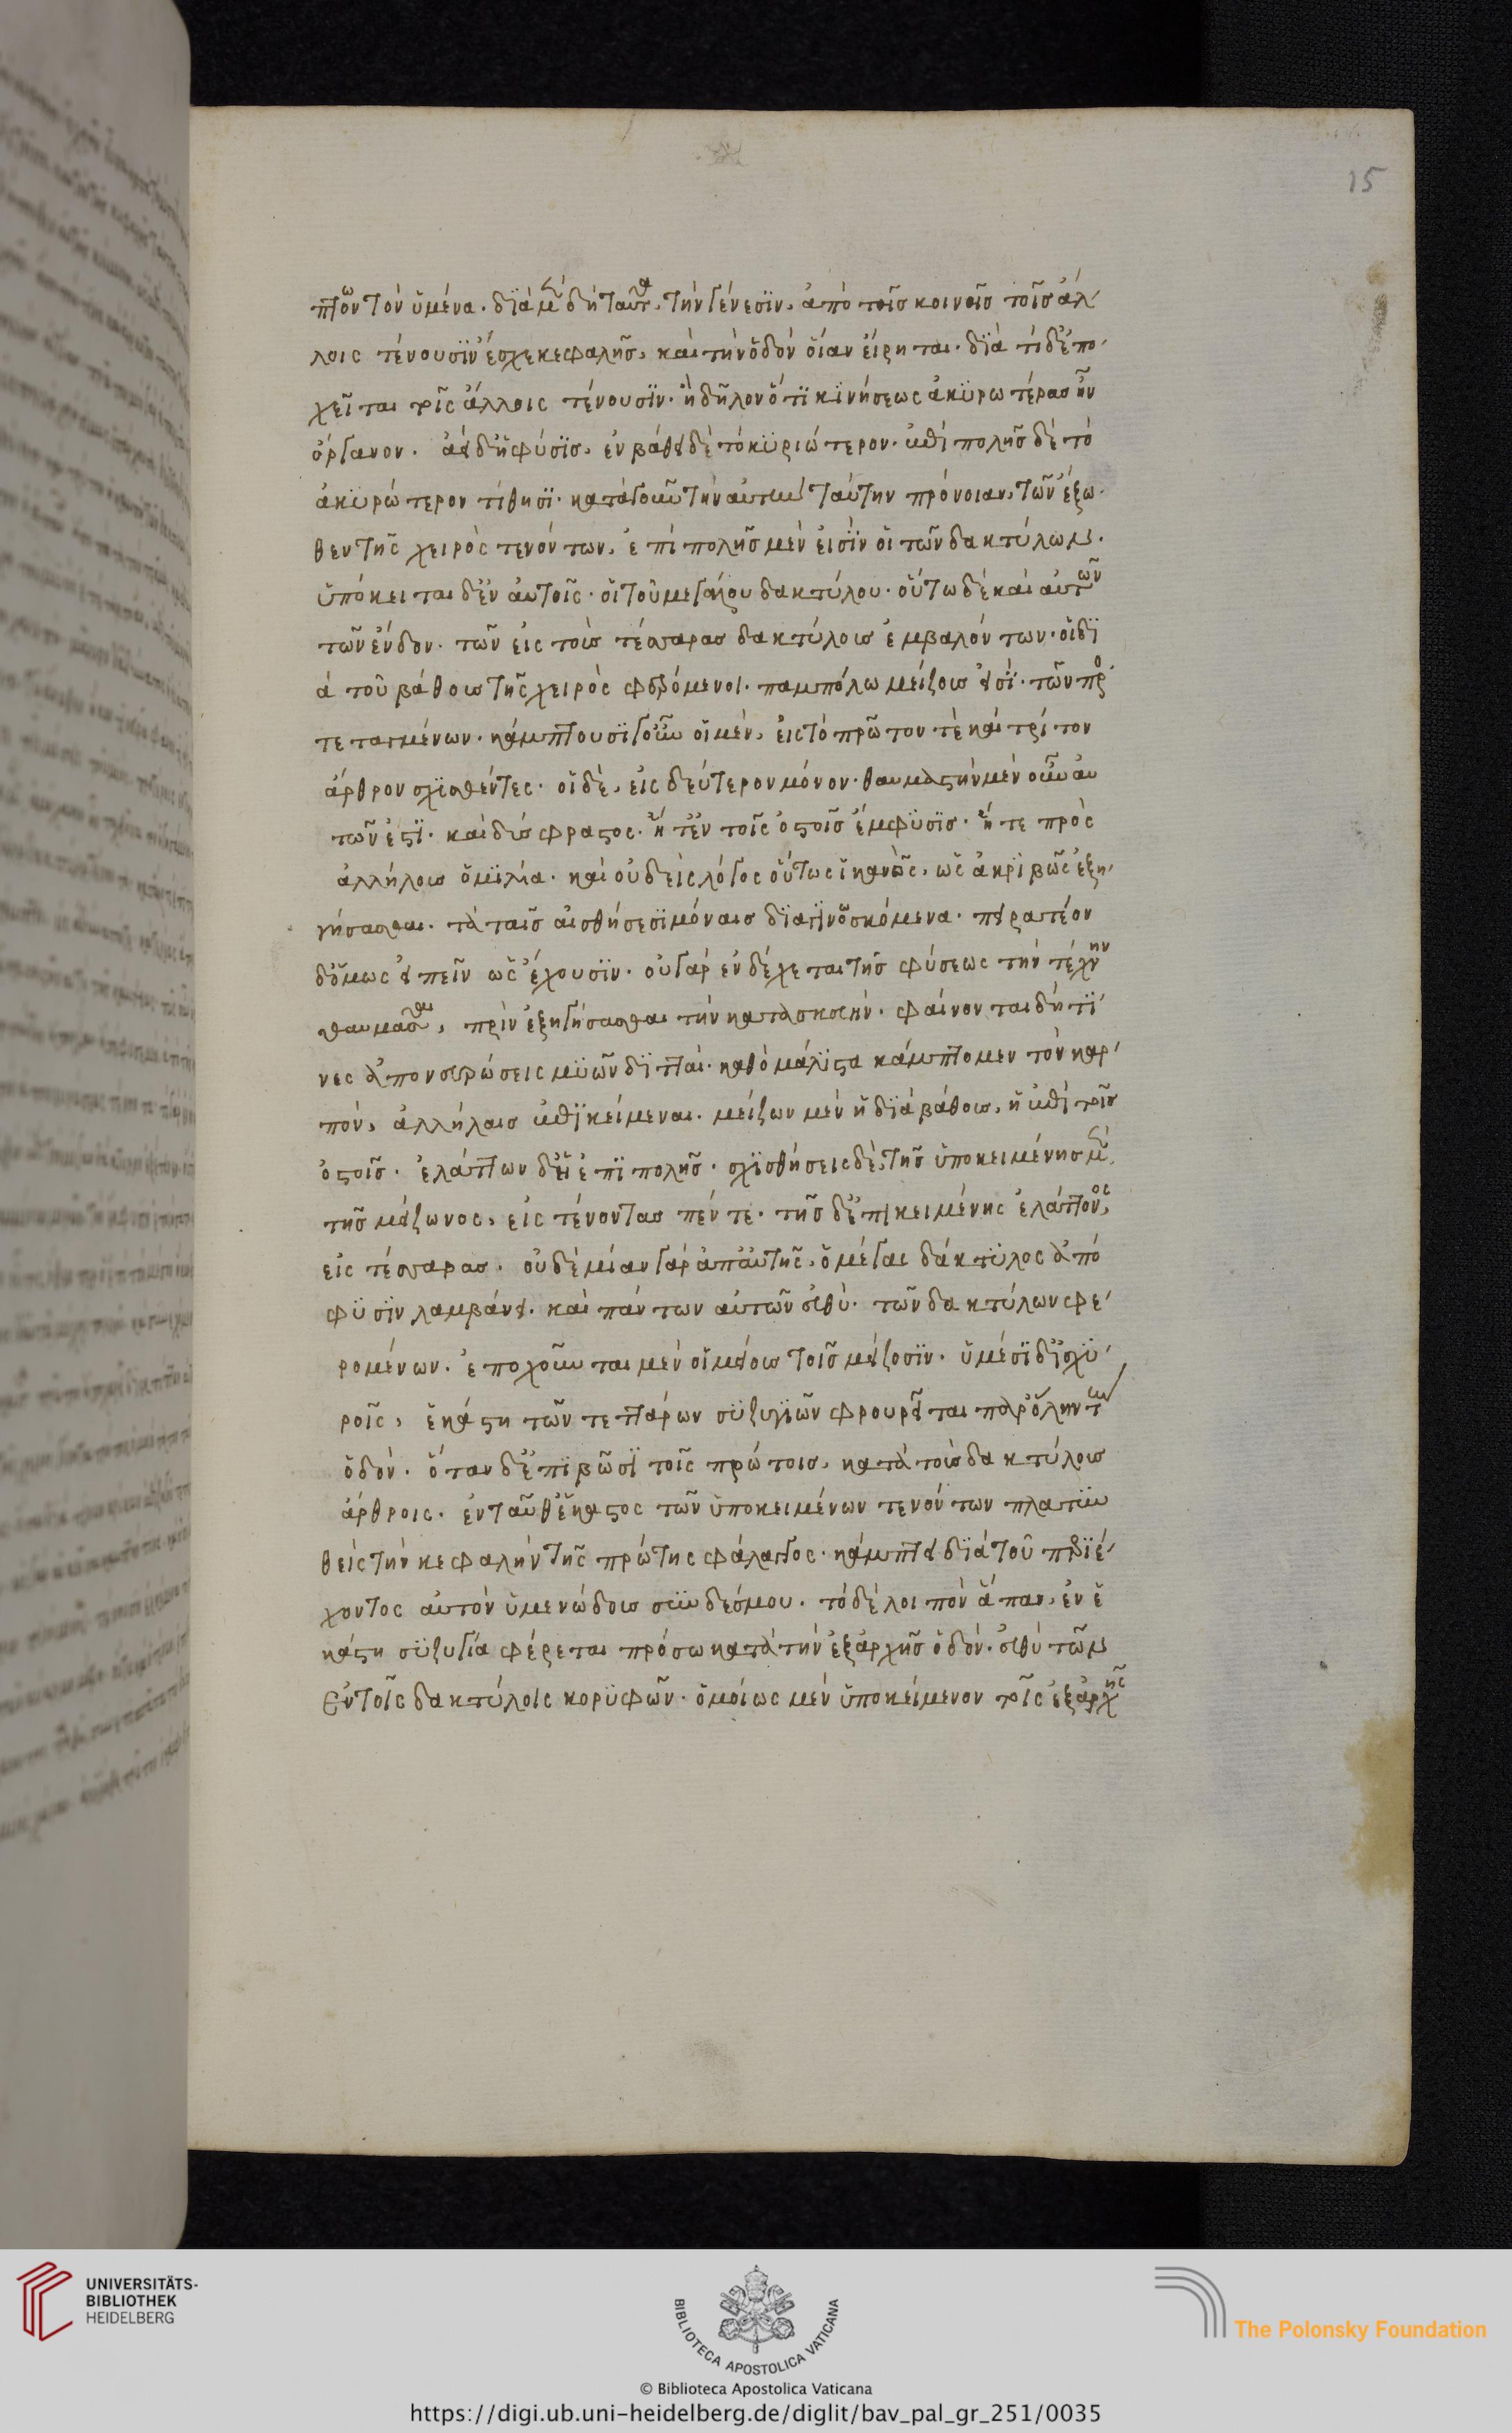 15
πτον τὸν ὑμένα. διὰ μὲν δὴ ταῦτα, τὴν γένεσιν, ἀπὸ τῆς κοινῆς τοῖς ἄλ
λοις τένουσιν ἔσχε κεφαλῆς, καὶ τὴν ὁδὸν οἵαν εἴρηται. διὰ τί δ' ἐπο
χεῖται τοῖς ἄλλοις τένουσιν. ἢ δῆλον ὅτι κινήσεως ἀκυρωτέρας ἦν
ὄργανον. ἀεὶ δ' ἡ φύσις, ἐν βάθει δὲ τὸ κυριώτερον. ἐπιπολῆς δὲ τὸ
ἀκυρώτερον τίθησι. κατὰ γοῦν τὴν αὐτὴν ταύτην πρόνοιαν, τῶν ἔξω
θεν τῆς χειρὸς τενόντων, ἐπιπολῆς μέν εἰσιν οἱ τῶν δακτύλων.
ὑπόκεινται δ' ἐν αὐτοῖς. οἱ τοῦ μεγάλου δακτύλου. οὕτω δὲ καὶ αὐτῶν
τῶν ἔνδον. τῶν εἰς τοὺς τέσσαρας δακτύλους ἐμβαλόντων. οἱ δι
ὰ τοῦ βάθους τῆς χειρὸς φερόμενοι. παμπόλω μείζους εἰσί. τῶν προ
τεταγμένων. κάμπτουσι γοῦν οἱ μὲν, εἰς τὸ πρῶτον τὲ καὶ τρίτον
ἄρθρον σχισθέντες. οἱ δὲ, εἰς δεύτερον μόνον. θαυμαστὴ μὲν οὖν αὐ
τῶν ἐστι. καὶ δύσφραστος. ἥ τ' ἐν τοῖς ὀστοῖς ἔμφυσις. ἥ τε πρὸς
ἀλλήλους ὁμιλία. καὶ οὐδεὶς λόγος οὕτως ἱκανὸς, ὡς ἀκριβῶς ἐξη
γήσασθαι. τὰ ταῖς αἰσθήσεσι μόναις διαγινωσκόμενα. πειρατέον
δ' ὅμως εἰπεῖν ὡς ἔχουσιν. οὐ γὰρ ἐνδέχεται τῆς φύσεως τὴν τέχνην
θαυμάσαι, πρὶν ἐξηγήσασθαι τὴν κατασκευήν. φαίνονται δή τι
νες ἀπονευρώσεις μυῶν διτταὶ. καθὸ μάλιστα κάμπτομεν τὸν καρ
πὸν, ἀλλήλαις ἐπικείμεναι. μείζων μὲν ἡ διὰ βάθους, ἡ ἐπὶ τοῖς
ὀστοῖς. ἐλάττων δ' ἡ ἐπιπολῆς. σχισθήσεις δὲ, τῆς ὑποκειμένης μὲν
τῆς μείζωνος, εἰς τένοντας πέντε. τῆς δ' ἐπικειμένης ἐλάττονος,
εἰς τέσσαρας. οὐδεμίαν γὰρ ἀπ' αὐτῆς, ὁ μέγας δάκτυλος ἀπό
φυσιν λαμβάνει. καὶ πάντων αὐτῶν εὐθὺ. τῶν δακτύλων φε
ρομένων. ἐποχοῦνται μὲν οἱ μείους τοῖς μείζοσιν. ὑμέσι δ' ἰσχυ
ροῖς, ἑκάστη τῶν τεττάρων συζυγιῶν φρουρεῖται παρ' ὅλην τὴν
ὁδὸν. ὅταν δ' ἐπιβῶσι τοῖς πρώτοις, κατὰ τοὺς δακτύλους
ἄρθροις. ἐνταῦθ' ἕκαστος τῶν ὑποκειμένων τενόντων πλατυν
θεὶς τὴν κεφαλὴν τῆς πρώτης φάλαγγος. κάμπτει διὰ τοῦ περιέ
χοντος αὐτὸν ὑμενώδους συνδέσμου. τὸ δὲ λοιπὸν ἅπαν, ἐν ἑ
κάστη συζυγία φέρεται πρόσω κατὰ τὴν ἐξ ἀρχῆς ὁδὸν. εὐθὺ τῶν
ἐν τοῖς δακτύλοις κορυφῶν. ὁμοίως μὲν ὑποκείμενον τοῖς ἐξ ἀρχῆς
UNIVERSITÄTS-
BIBLIOTHEK
HEIDELBERG
BIBLIOTECA APOSTOLICA VATICANA
The Polonsky Foundation
© Biblioteca Apostolica Vaticana
https://digi.ub.uni-heidelberg.de/diglit/bav_pal_gr_251/0035